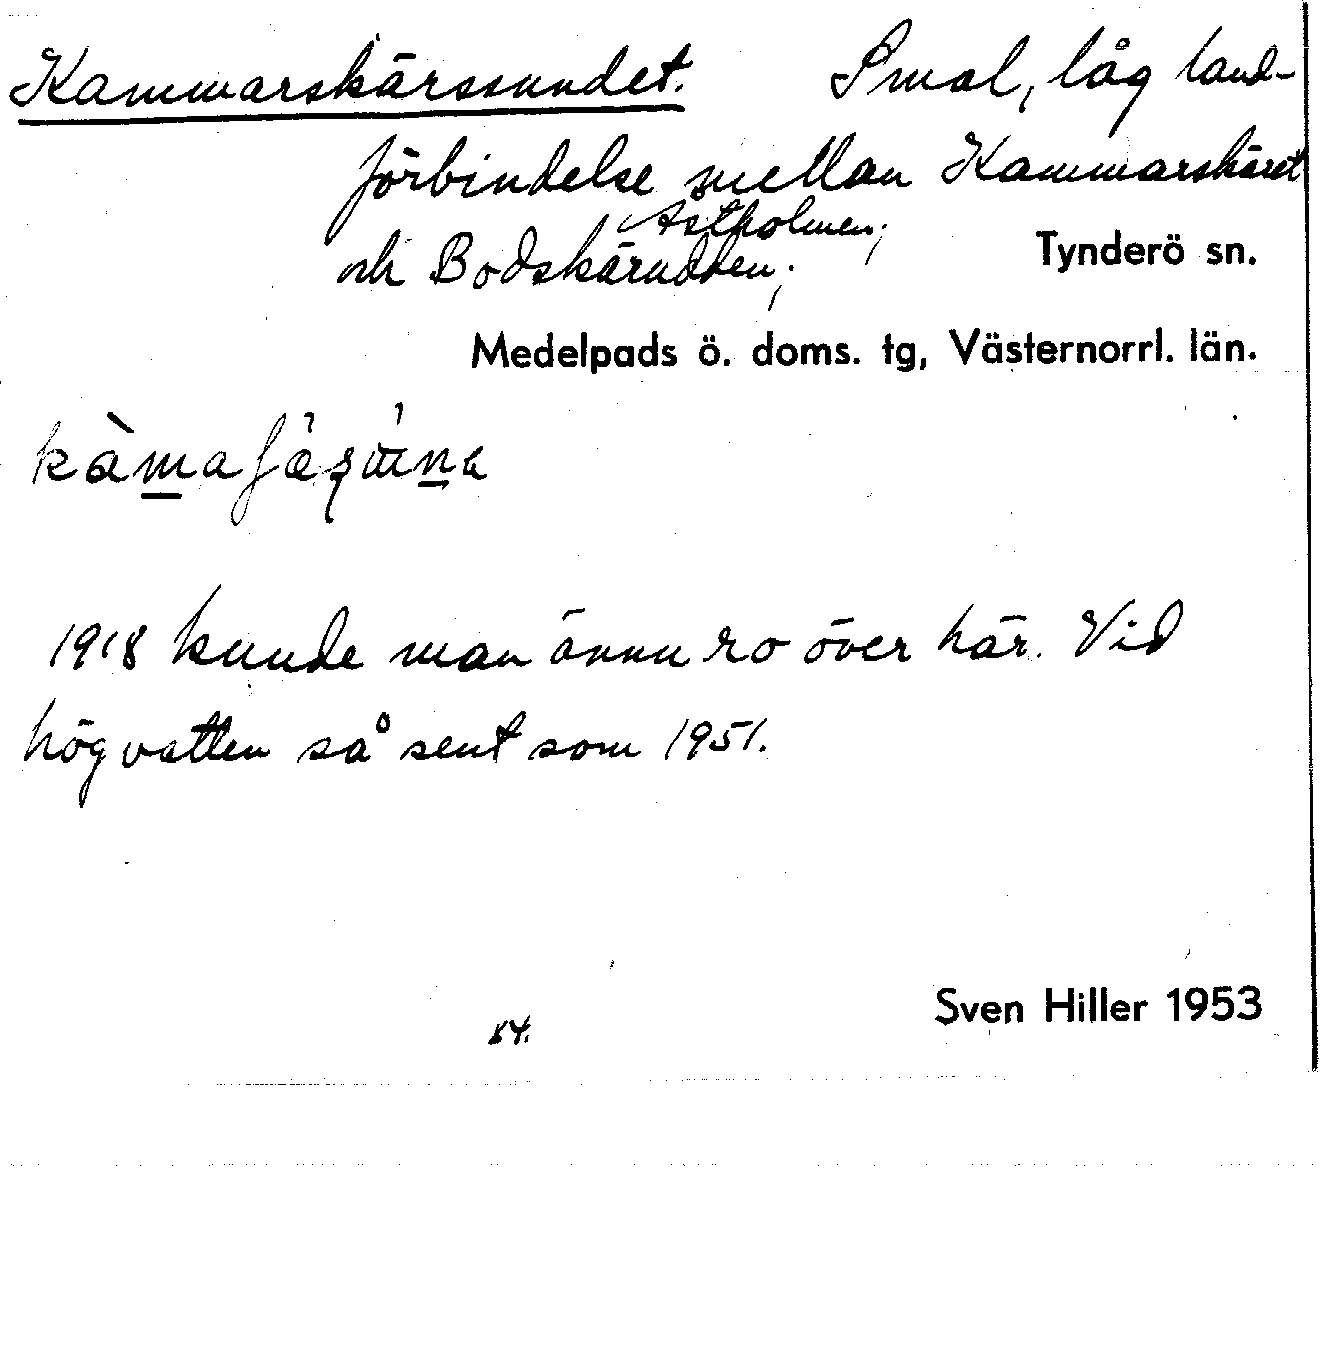 Kammarskärssundet. Smal, låg land-
förbindelse mellan Kammarskäret
Åstholmen;
och Bodskärudden; Tynderö sn.
Medelpads ö. doms. tg, Västernorrl. län.
1918 kunde man ännu ro över här. Vid
högvatten så sent som 1951.
Sven Hiller 1953